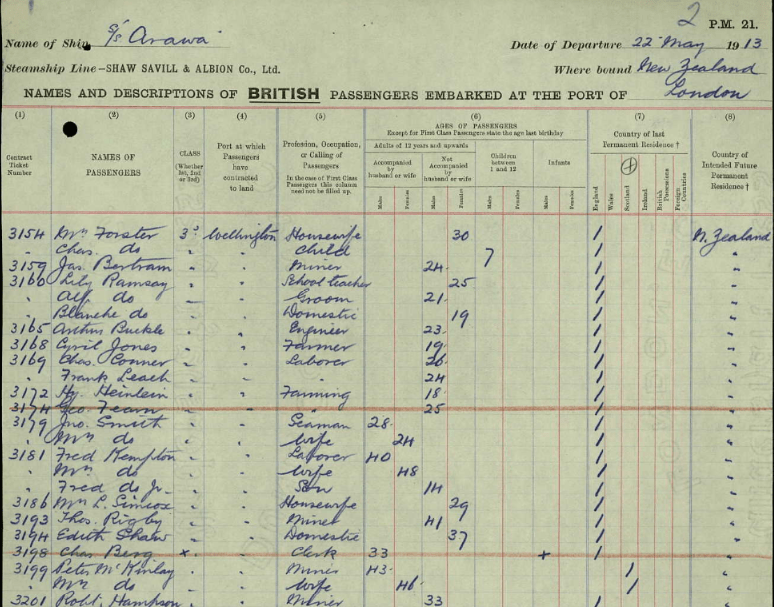 2 P.M. 21.
Name of Ship S/S Arawa
Date of Departure 22 May 1913
Steamship Line—SHAW SAVILL & ALBION Co., Ltd.
Where bound New Zealand
NAMES AND DESCRIPTIONS OF BRITISH PASSENGERS EMBARKED AT THE PORT OF London
(1) (2) (3) (4) (5) (6) (7) (8)
Contract Ticket Number
NAMES OF PASSENGERS
CLASS (Whether 1st, 2nd or 3rd)
Port at which Passengers have contracted to land
Profession, Occupation, or Calling of Passengers
In the case of First Class Passengers this column need not be filled up.
AGES OF PASSENGERS
Except for First Class Passengers state the age last birthday
Adults of 12 years and upwards
Accompanied by husband or wife
Not Accompanied by husband or wife
Children between 1 and 12
Infants
Males Females Males Females Males Females Males Females
Country of last Permanent Residence †
England Wales Scotland Ireland British Possessions Foreign Countries
Country of Intended Future Permanent Residence †
3154 Mrs Forster 3d Wellington Housewife 30 / N. Zealand
" Chas. do " " Child 7 / "
3159 Jas. Bertram " " Miner 24 / "
3160 Lily Ramsay " " School teacher 25 / "
" Alf. do " " Groom 21 / "
" Blanche do " " Domestic 19 / "
3165 Arthur Buckle " " Engineer 23 / "
3168 Cyril Jones " " Farmer 19 / "
3169 Chas. Conner " " Laborer 26 / "
" Frank Leach " " " 24 / "
3172 Hy. Heinlein " " Farming 18 / "
3174 Geo. Fearn " " " 25 / "
3179 Jno. Smith " " Seaman 28 / "
" Mrs do " " Wife 24 / "
3181 Fred Kempton " " Laborer 40 / "
" Mrs do " " Wife 48 / "
" Fred do Jr. " " Son 14 / "
3186 Mrs L. Simcox " " Housewife 29 / "
3193 Thos. Rigby " " Miner 41 / "
3194 Edith Shaw " " Domestic 37 / "
3198 Chas. Berg × " Clerk 33 + /
3199 Peter McKinlay " " Miner 43 / "
" Mrs do " " Wife 46 / "
3201 Robt. Hampson " " Miner 33 / "